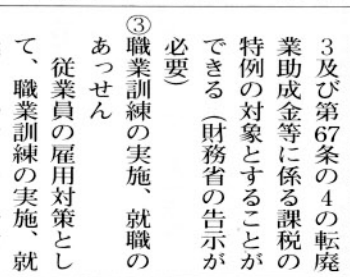 3及び第67条の4の転廃
業助成金等に係る課税の
特例の対象とすることが
できる（財務省の告示が
必要）
③職業訓練の実施、就職の
あっせん
従業員の雇用対策とし
て、職業訓練の実施、就